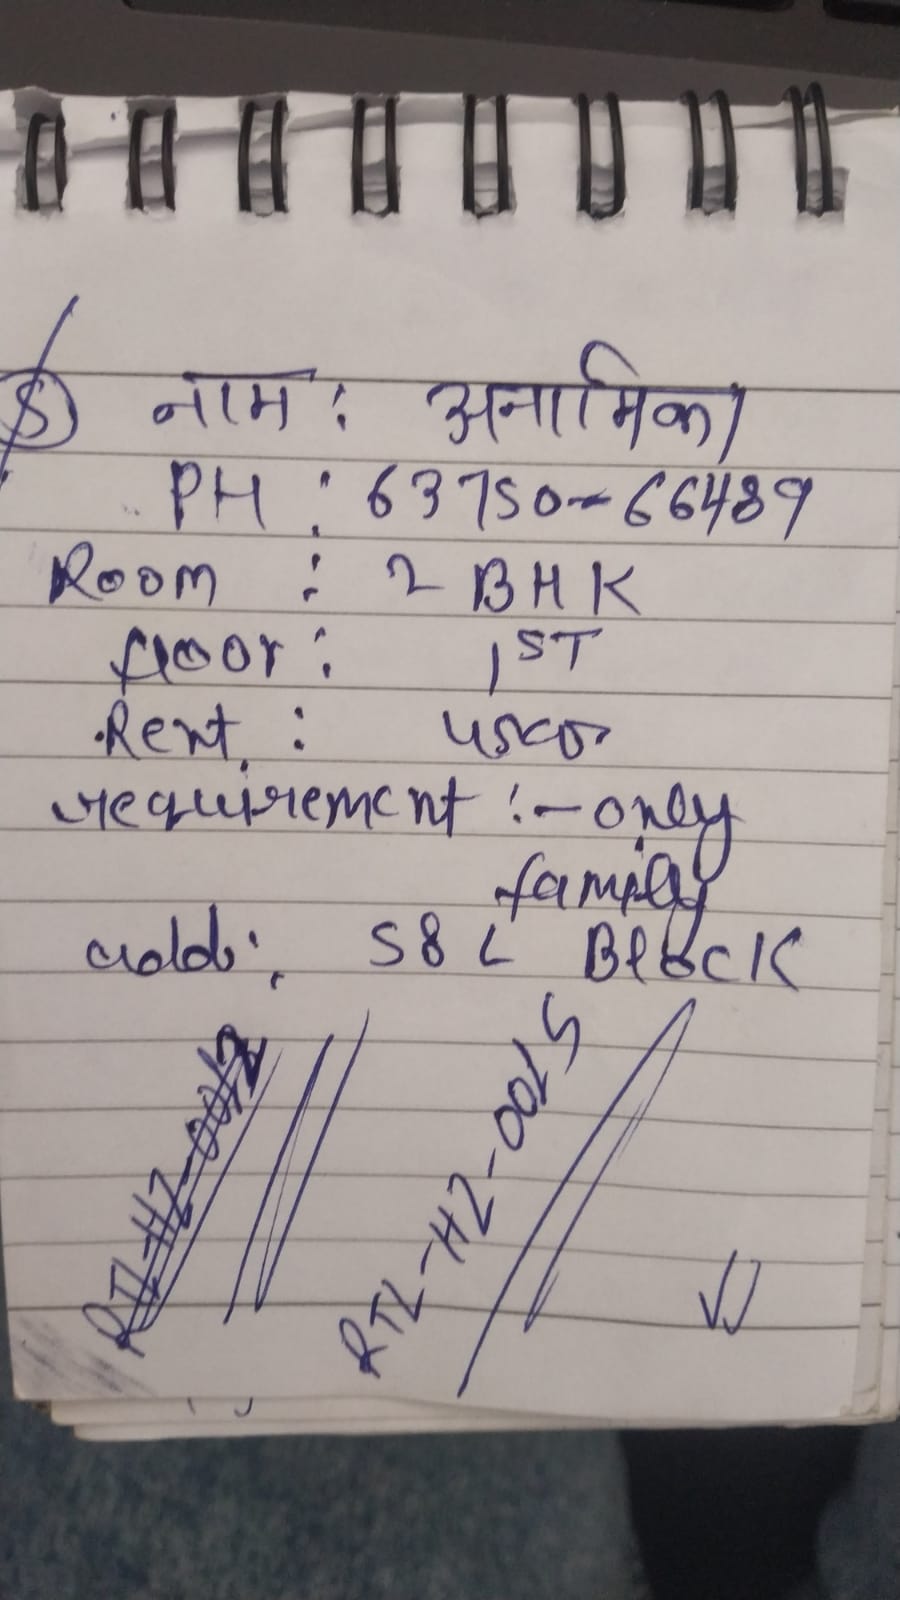 ⑤ नाम : अनामिका
PH : 63750-66489
Room : 2 BHK
floor : 1ST
Rent :
requirement :- only
family
add : S8 L BlocK
RTL-HZ-0012
RTL-HZ-0015